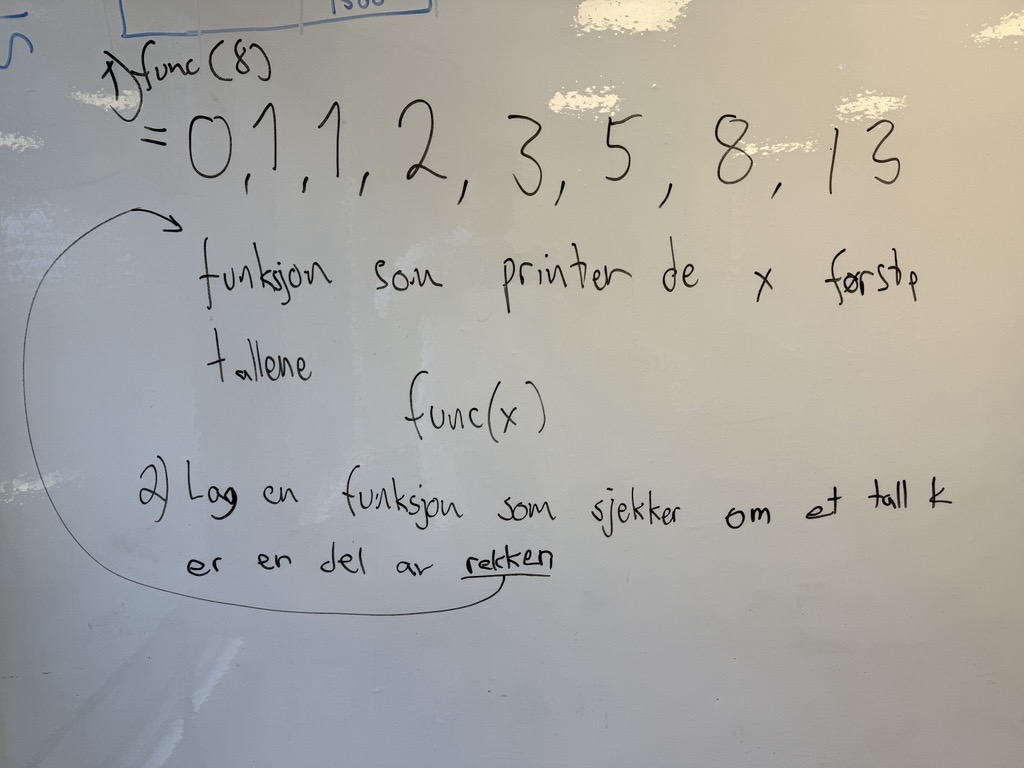 1500
1) func(8)
= 0, 1, 1, 2, 3, 5, 8, 13
funksjon som printer de x første
tallene
func(x)
2) Lag en funksjon som sjekker om et tall k
er en del av rekken